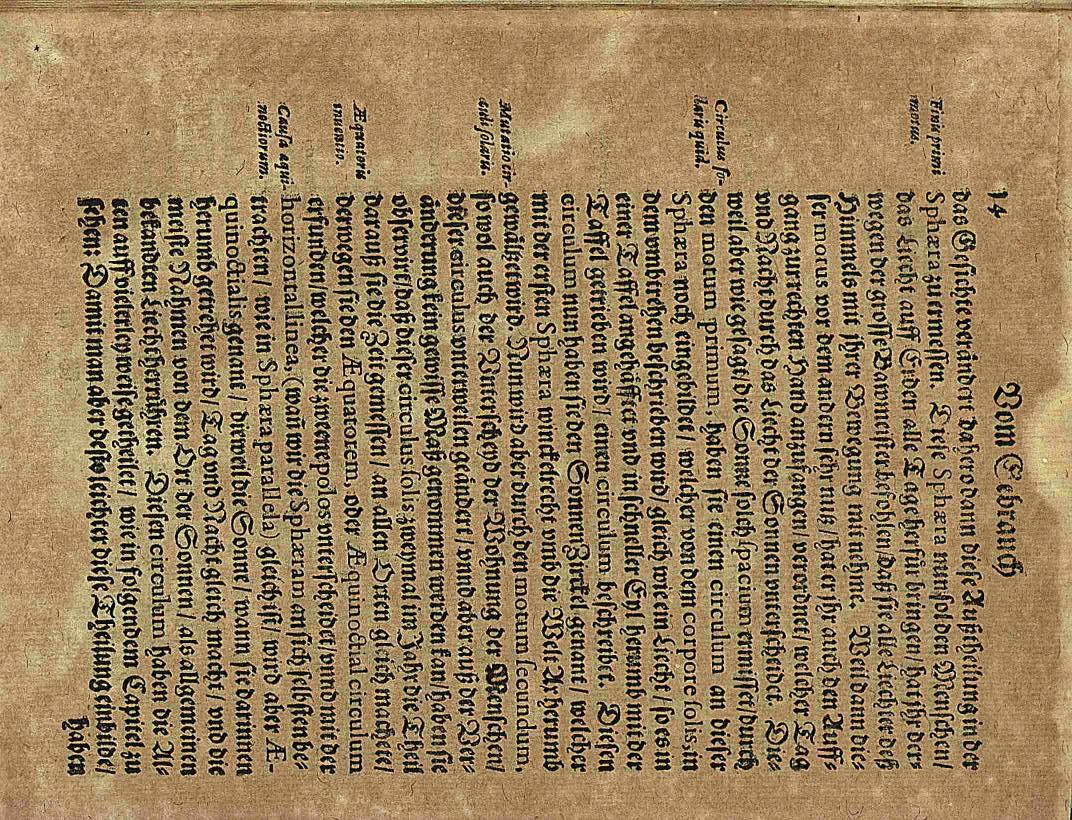 14 Vom Gebrauch
das Gesichte verändert dahero dann diese Außtheilung in der
Sphæra zuermessen. Diese Sphæra nun sol den Menschen/
das Liecht auff Erden alle Tage herfür bringen/ hat ihr der-
wegen der grosse Bawmeister befohlen/ daß sie alle Liechter deß
Himmels mit ihrer Bewegung mit nehme. Weil dann die-
ser motus vor dem andern sein mus/ hat er ihr auch den Auff-
gang zur rechten Hand anzufangen/ verordnet/ welcher Tag
vnd Nacht durch das Liecht der Sonnen vnterscheidet. Die-
weil aber wie gesagt/ die Sonne solch spacium ermisset/ durch
den motum primum, haben sie einen circulum an dieser
Sphæra noch eingebildet/ welcher von dem corpore solis, in
dem vmbgehen beschrieben wird/ gleich wie ein Liecht/ so es in
einer Taffel angehäfftet vnd in schneller Eyl herumb mit der
Taffel getrieben wird/ einen circulum beschreibet. Diesen
circulum nun haben sie den Sonnen Zirckel genant/ welcher
mit der ersten Sphæra winckelrecht vmb die Welt Ax herumb
gewältzet wird. Nun wird aber durch den motum secundum,
so wol auch der Vnterscheyd der Wohnung der Menschen/
dieser circulus vnterweilen geändert/ vnnd aber auß der Ver-
änderung kein gewisse Maß genommen werden kan/ haben sie
observirt/ daß dieser circulus solis zweymal im Jahr die Theil
darauß sie die Zeit gemessen/ an allen Orten gleich machete/
derwegen sie den Æquatorem, oder Æquinoctial circulum
erfunden/ welcher die zweene polos vnterscheidet/ vnnd mit der
horizontal linea, (wañ wir die Sphæram an sich selbsten be-
trachten/ wie in Sphæra parallela) gleich ist/ wird aber Æ-
quinoctialis genent/ dieweil die Sonne/ wann sie darinnen
herumb getrehet wird/ Tag vnd Nacht gleich macht/ vnd die
meiste Nahmen von dem Ort der Sonnen/ als allgemeinen
bekandten Liecht herrühren. Diesen circulum haben die Al-
ten auff vielerley weise getheilet/ wie in folgendem Capitel zu
sehen: Damit man aber desto leichter diese Theilung einbilde/
haben
Finis primi
motus.
Circulus so-
laris quid.
Mutatio cir-
culi solaris.
Æquatoris
inuentio.
Causa æqui-
noctiorum.